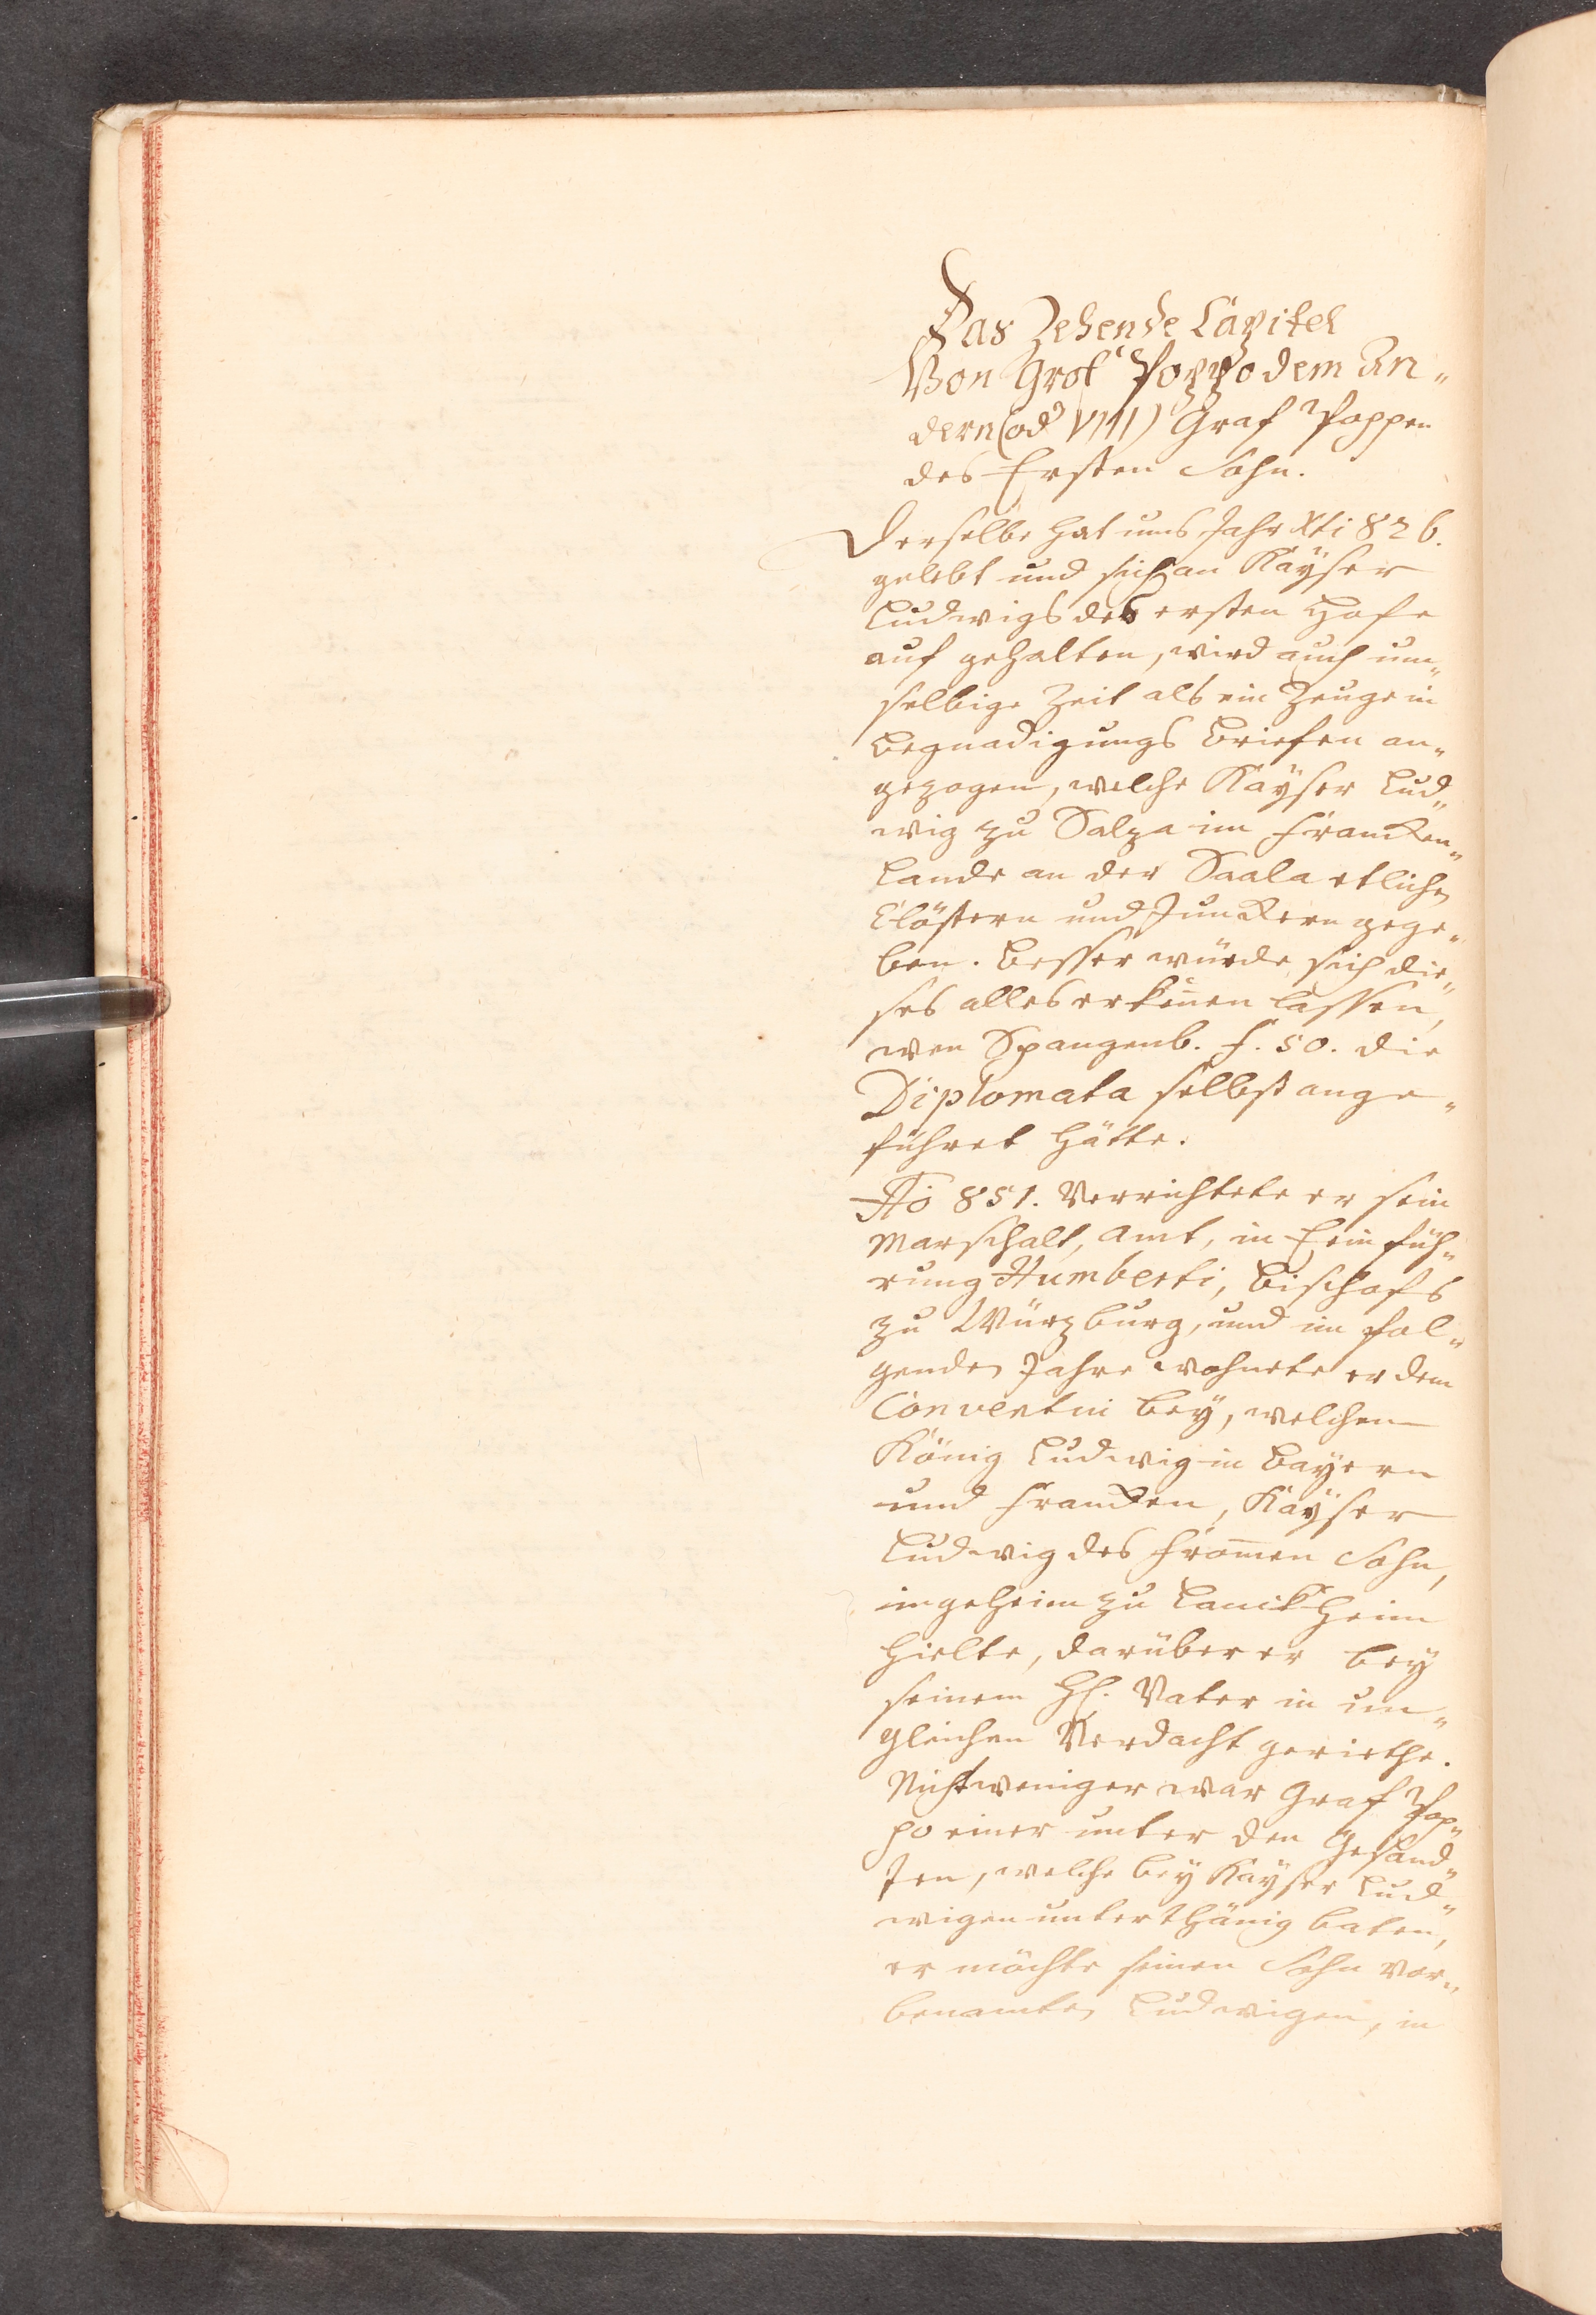 Das Zehende Capitel
Von Graf Poppo dem An„
dern (od VIII) Graf Poppen
des Ersten Sohn.
Derselbe hat ums Jahr Xti 826.
gelebt und sich an Kayser
Ludwigs des ersten Hofe
auf gehalten, wird auch um„
selbige Zeit als ein Zeuge in
Begnadigungs Briefen an„
gezogen, welche Kayser Lud„
wig zu Salza im Francken„
Lande an der Saala etlichen
Clöstern und Junckern gege„
ben. Besser würde sich die„
ses alles erkeñen lassen,
wen Spangenb. f. 50. die
Diplomata selbst ange„
führet hätte.
Aō 851. Verrichtete er sein
Marschalt, Amt, in Einfüh„
rung Humberti, Bischofs
zu Würzburg, und im fol„
genden Jahre wohnete er dem
Conventui bey, welchen
König Ludwig in Bayern
und Francken, Kayser
Ludwig des From̄en Sohn,
ingeheim zu hielte, darüber er bey
seinem H. Vater in un„
gleichen Verdacht geriethe.
Nicht weniger war Graf Pop„
po einer unter den Gesand„
ten, welche bey Kayser Lud„
wigen unterthänig baten,
er möchte seinen Sohn vor„
benamten Ludwigen, in